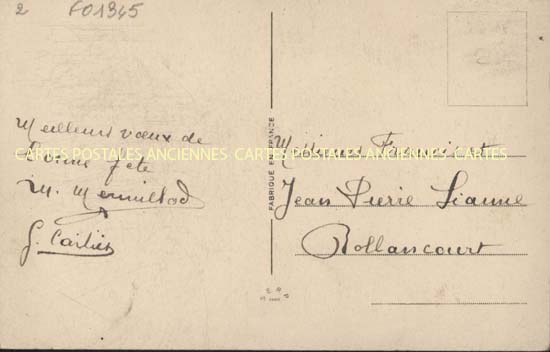 2 F01345
Meilleurs vœux de
bonne fête
M. Mermillod
G. Carlier
CARTES POSTALES ANCIENNES CARTES POSTALES ANCIENNES CARTES POSTALES ANCIENNES
FABRIQUÉ EN FRANCE
Messieurs Francis et
Jean Pierre Lianne
Rollancourt